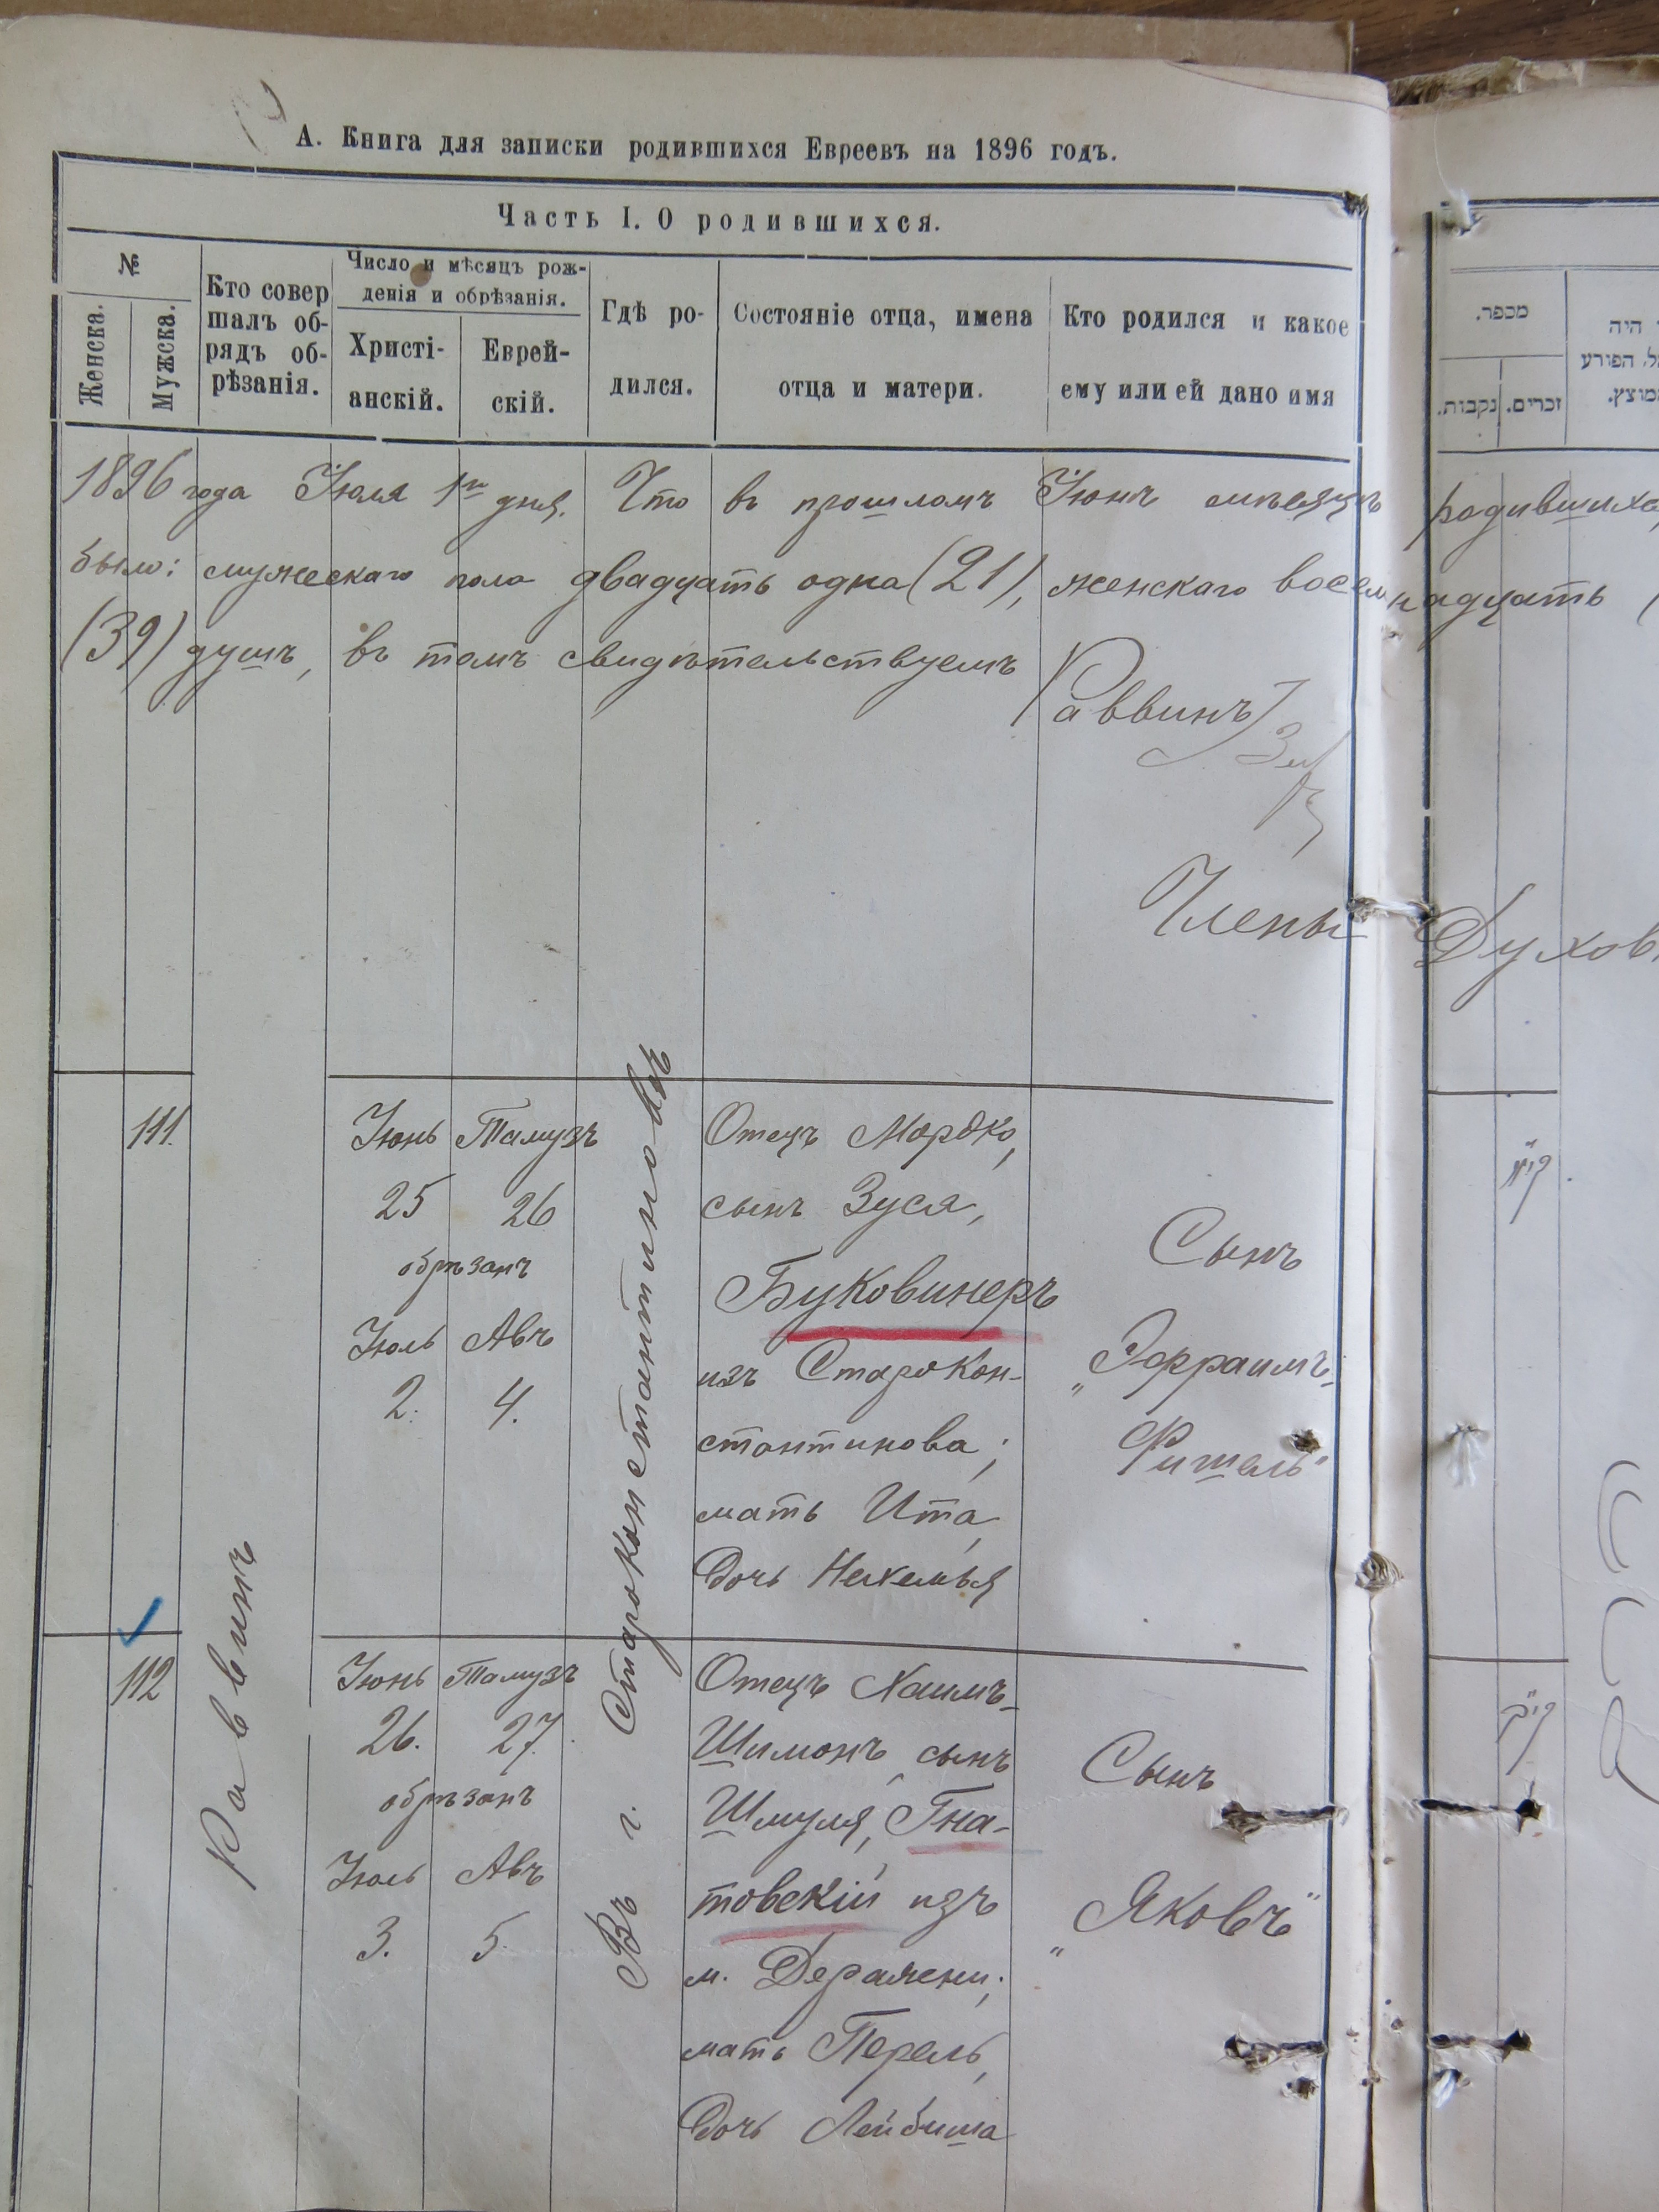 А. Книга для записки родившихся Евреевъ на 1896 годъ.
Часть I. О родившихся.
№
Женска.
Мужска.
Кто совер
шалъ об-
рядъ об-
рѣзанія.
Число и мѣсяцъ рож-
денія и обрѣзанія.
Христі-
анскій.
Еврей-
скій.
Гдѣ ро-
дился.
Состояніе отца, имена
отца и матери.
Кто родился и какое
ему или ей дано имя
1896 года Іюля 1го дня. Что въ прошломъ Іюнѣ мѣсяцѣ родивших
было: мужескаго пола двадцать одна (21), женскаго восемнадцать (
(39) душъ, въ томъ свидѣтельствуемъ
Раввинъ
Члены Духов
Раввинъ
Въ г. Староконстантиновѣ
111.
Іюнь Тамузъ
25 26
обрѣзанъ
Іюль Авъ
2. 4.
Отецъ Мордко,
сынъ Зуся,
Буковинеръ
изъ Старокон-
стантинова;
мать Ита,
дочь Нехемья
Сынъ
„Эфраимъ-
Фишель"
112
Іюнь Тамузъ
26. 27.
обрѣзанъ
Іюль Авъ
3. 5.
Отецъ Хаимъ-
Шимонъ, сынъ
Шмуля, Гна-
товскій изъ
м. Деражни;
мать Перель,
дочь Лейбиша
Сынъ
„Яковъ"
מספר.
נקבות.
זכרים.
היה
הפורע
קי"א
קי"ב